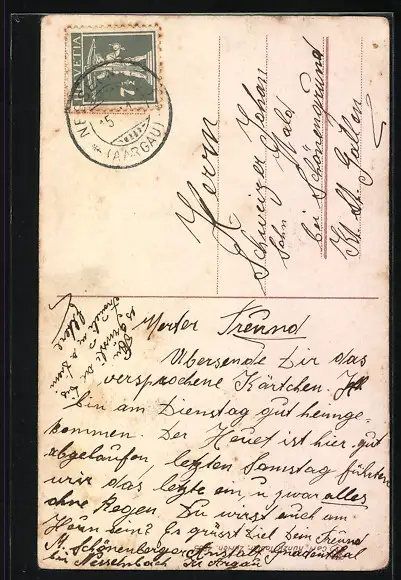 HELVETIA
7½
(AARGAU)
Herrn
Schweizer Johan
Sohn Wald
bei Schönengrund
Kt. St. Gallen
Werter Freund
Übersende Dir das
versprochene Kärtchen. Ich
bin am Dienstag gut heimge-
kommen. Der Heuet ist hier gut
abgelaufen letzten Samstag führten
wir das letzte ein, u zwar alles
ohne Regen. Du wirst auch am
Heuen sein? Es grüsst Dich Dein Freund
M. Schönenberger Anstalt Gnadenthal
bei Nesselnbach Kt. Argau